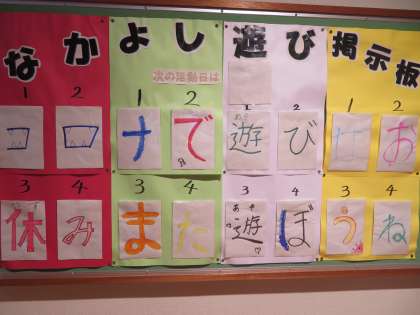 なかよし 遊び 掲示板
次の活動日は
1 2
1 2
ナ で
1 2
遊 び
1 2
お
3 4
休 み
3 4
ま た
3 4
遊 ぼ
3 4
う ね